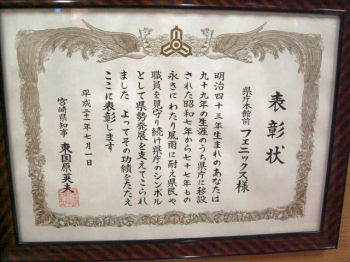 表彰状
県庁本館前
フェニックス様
明治四十三年生まれのあなたは
九十九年の生涯のうち県庁に移設
された昭和七年から七十七年もの
永きにわたり風雨に耐え県民や
職員を見守り続け県庁のシンボル
として県勢発展を支えてこられ
ました よってその功績をたたえ
ここに表彰します
平成二十一年七月一日
宮崎県知事 東国原英夫